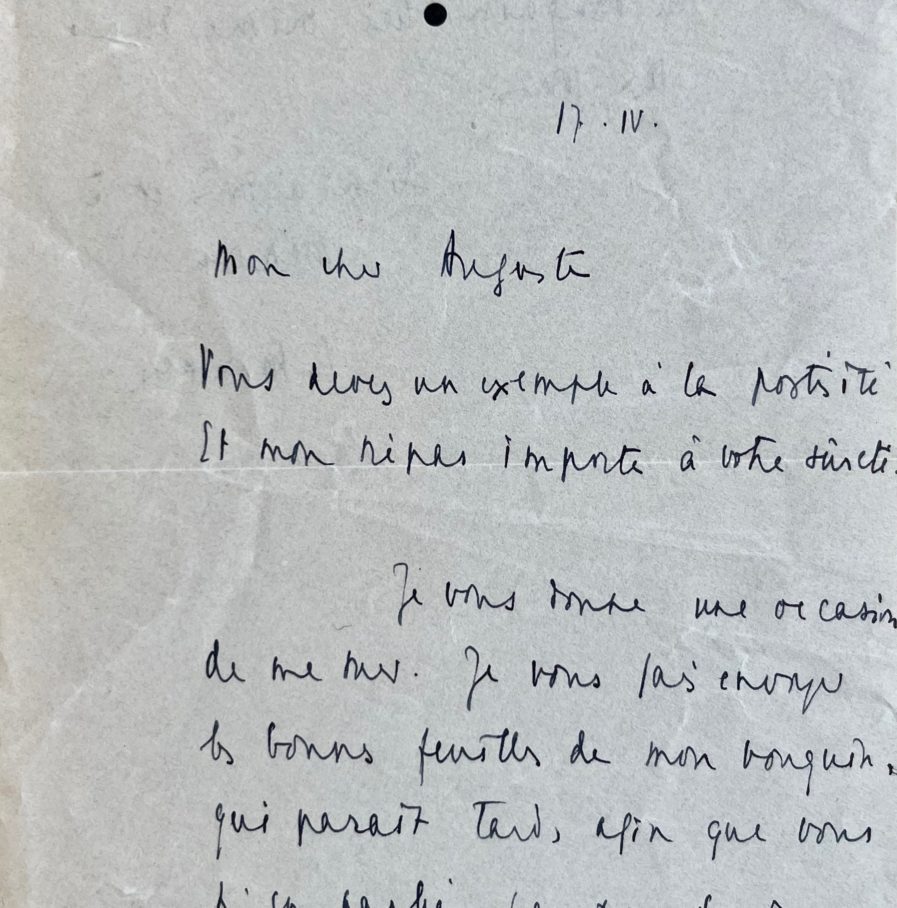 17.IV.
Mon cher Auguste
Vous devez un exemple à la postérité
Et mon trépas importe à votre sûreté.
Je vous donne une occasion
de me tuer. Je vous fais envoyer
les bonnes feuilles de mon bouquin,
qui paraît tard, afin que vous